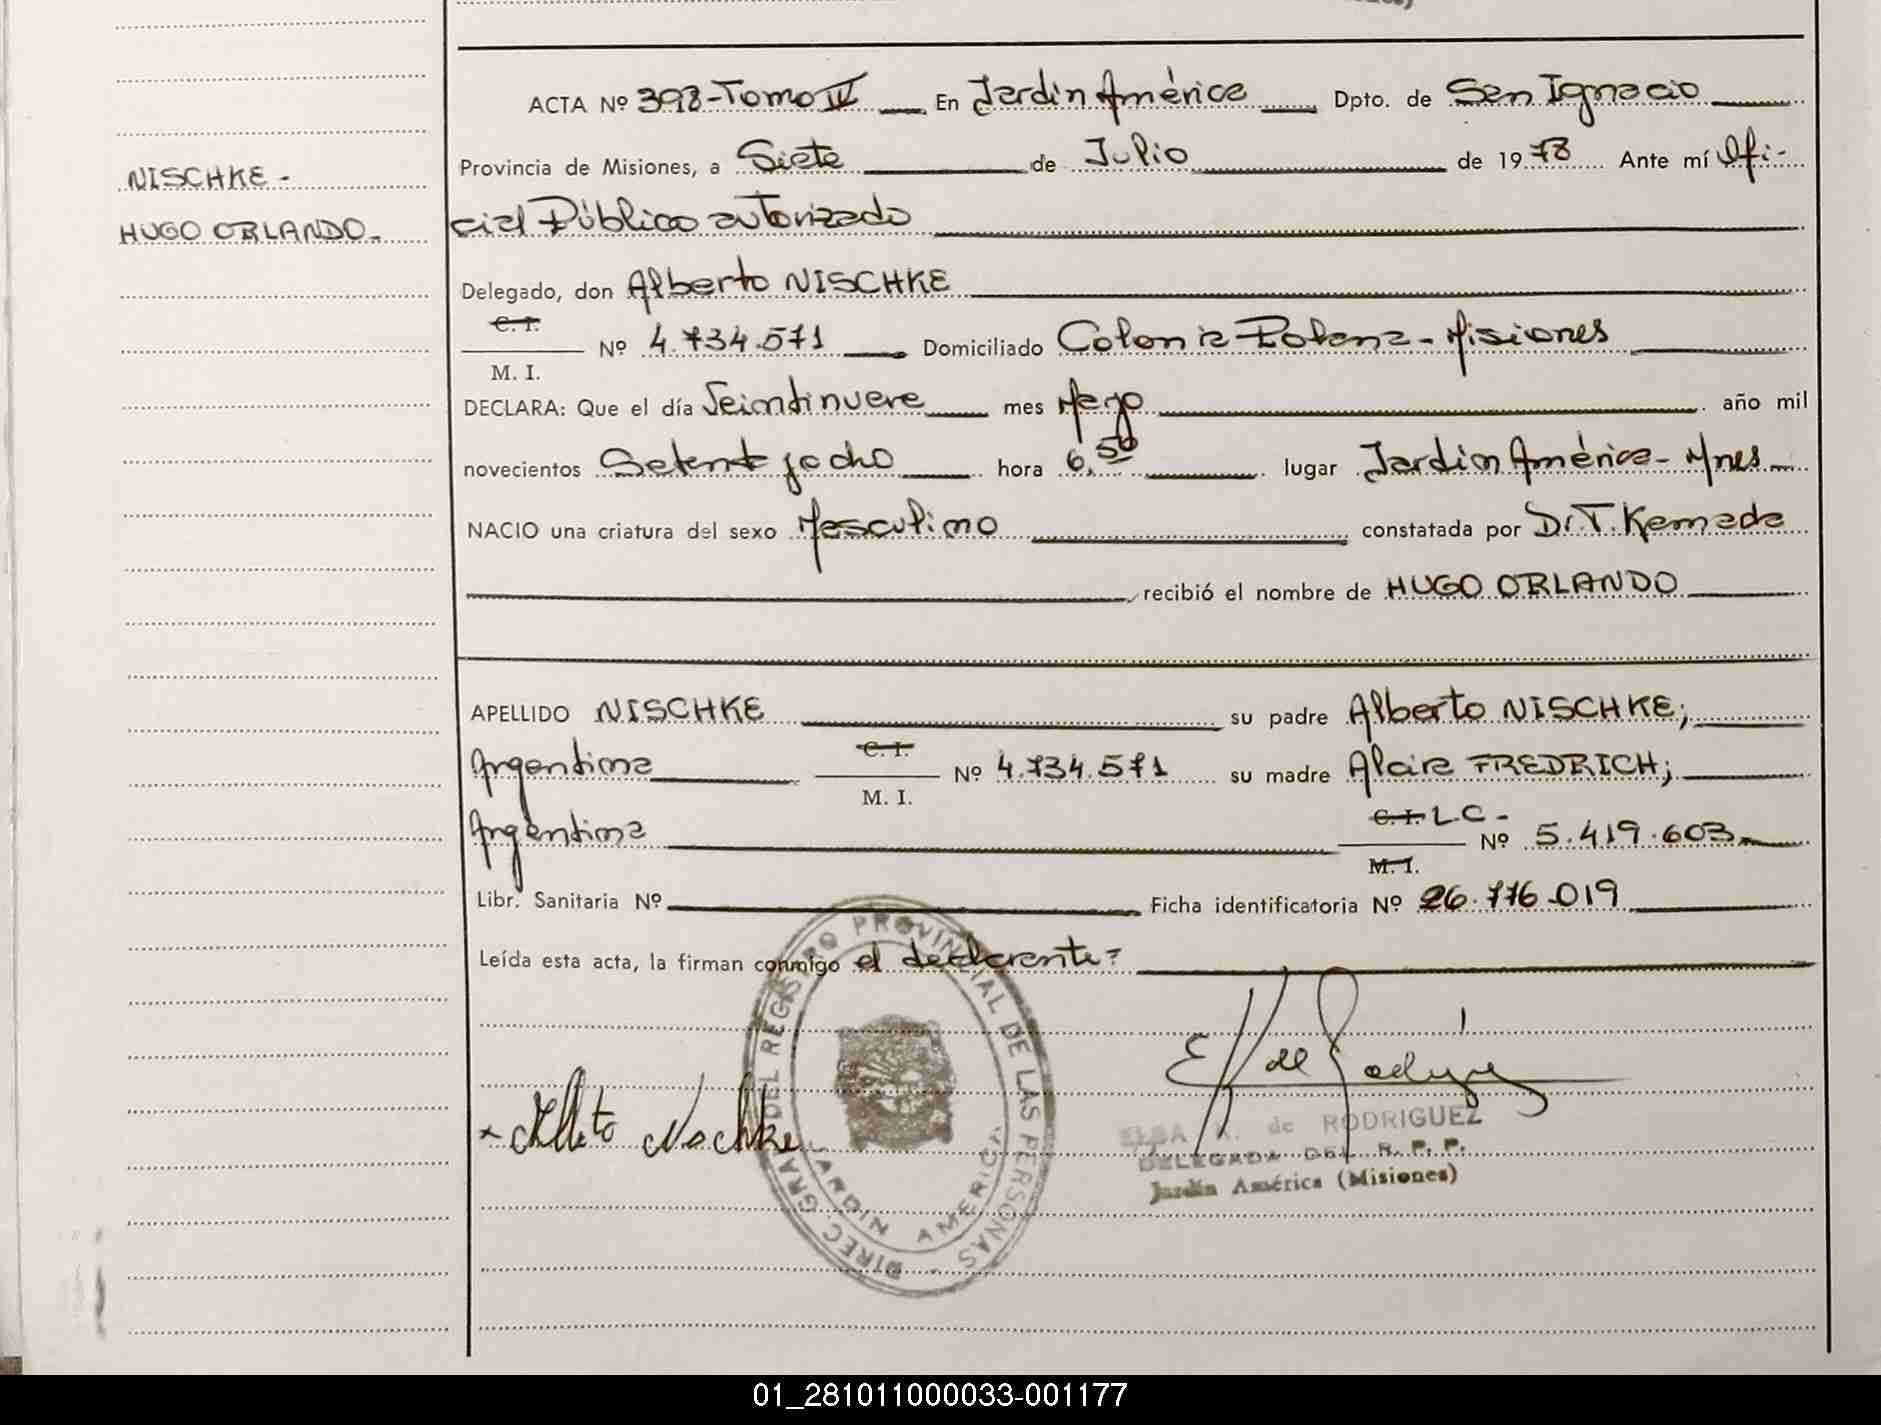 ACTA Nº 398-Tomo IV En Jardín América Dpto. de San Ignacio
Provincia de Misiones, a Siete de Julio de 1978 Ante mí Ofi-
NISCHKE -
HUGO ORLANDO.-
cial Público autorizado
Delegado, don Alberto NISCHKE
C. I.
Nº 4.734.571 Domiciliado Colonia Polana - Misiones
M. I.
DECLARA: Que el día Veintinueve mes Mayo año mil
novecientos Setenta y ocho hora 6,50 lugar Jardín América - Mnes
NACIO una criatura del sexo Masculino constatada por Dr. T. Kameda
recibió el nombre de HUGO ORLANDO
APELLIDO NISCHKE su padre Alberto NISCHKE;
Argentina C. I. Nº 4.734.571 su madre Alcira FREDRICH;
M. I.
Argentina C. I. L.C.- Nº 5.419.603
M. I.
Libr. Sanitaria Nº Ficha identificatoria Nº 26.776.019
Leída esta acta, la firman conmigo el declarante
DIREC. GRAL. DEL REGISTRO PROVINCIAL DE LAS PERSONAS
JARDIN AMERICA
Alberto Nischke
E de Rodríguez
ELBA de RODRIGUEZ
DELEGADA DEL R. P. P.
Jardín América (Misiones)
01_281011000033-001177